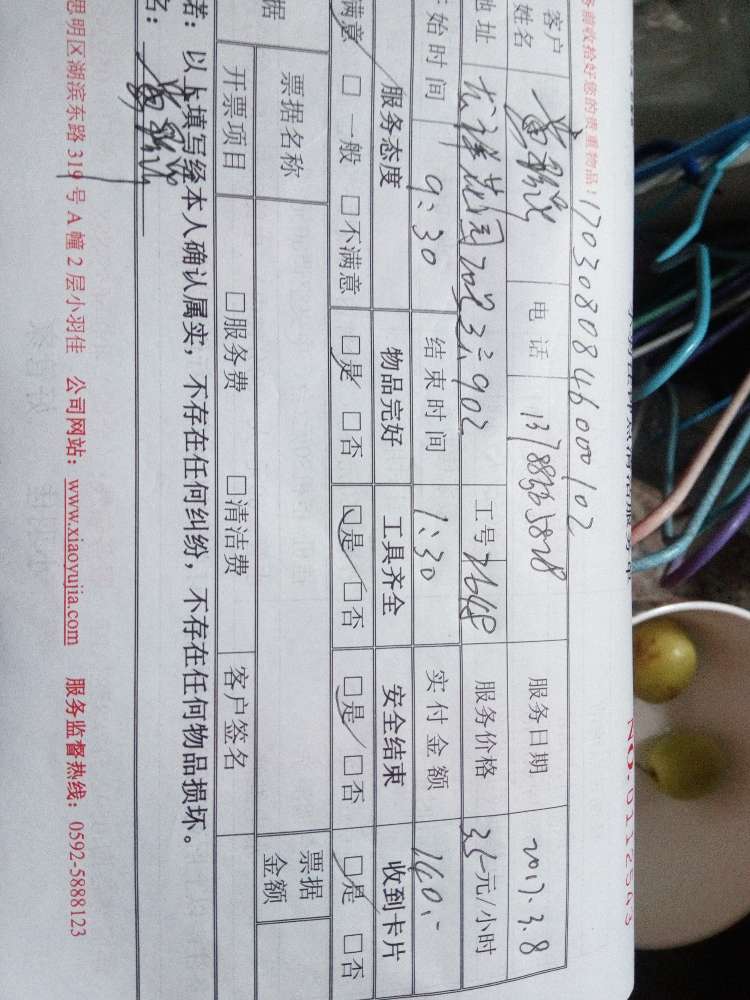 务前收拾好您的贵重物品！ 170308084600102 NO:0112503
客户姓名 电话 服务日期 2017.3.8
地址 龙祥花园 902 工号 2648 服务价格 35元/小时
开始时间 9:30 结束时间 1:30 实付金额 140.-
服务态度 物品完好 工具齐全 安全结束 收到卡片
满意 □一般 □不满意 □是 □否 □是 □否 □是 □否 □是 □否
据 票据名称 票据金额
开票项目 □服务费 □清洁费 客户签名
者：以上填写经本人确认属实，不存在任何纠纷，不存在任何物品损坏。
名：
思明区湖滨东路 319 号 A 幢 2 层小羽佳 公司网站：www.xiaoyujia.com 服务监督热线：0592-5888123